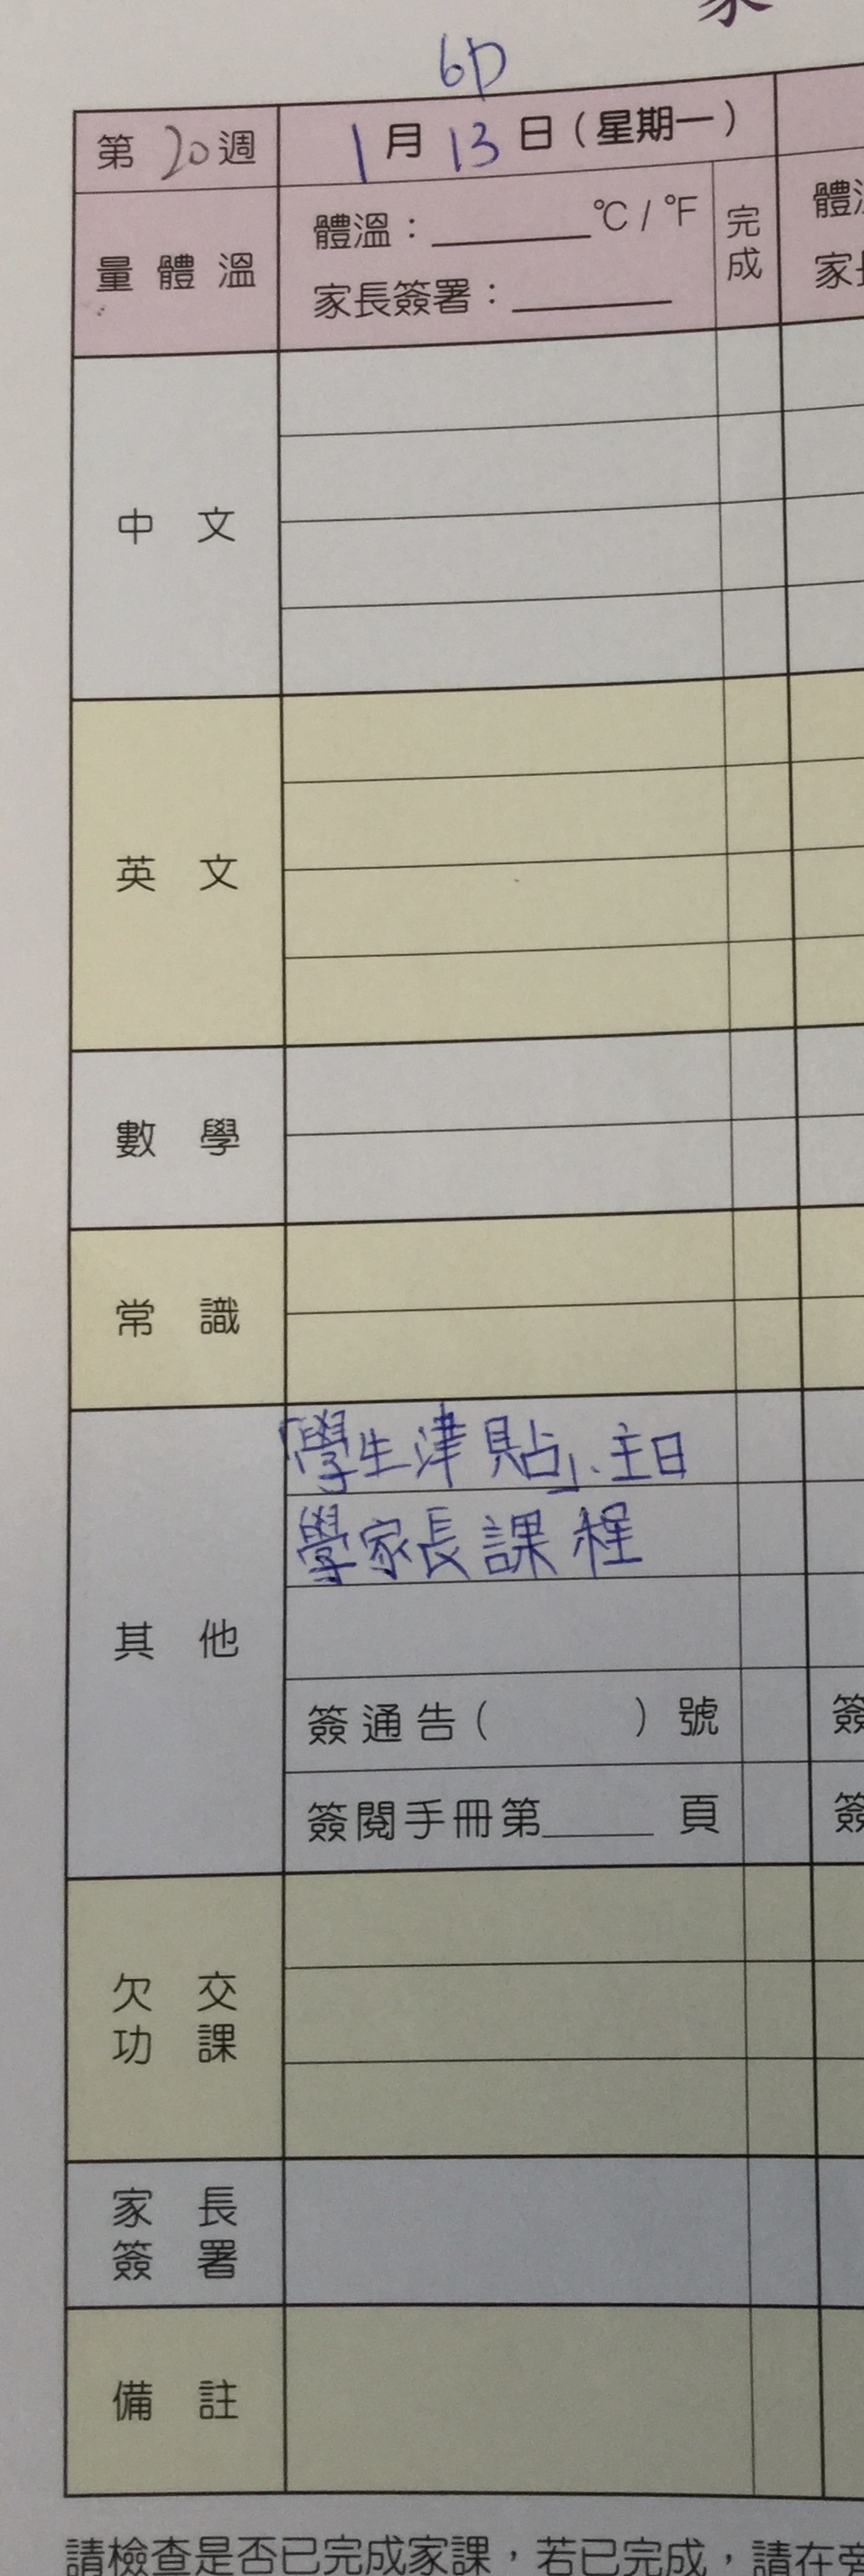 6D
第20週
1月13日(星期一)
量體溫
體溫：______°C / °F
家長簽署：______
完成
體溫
家長
中文
英文
數學
常識
其他
「學生津貼」、主日
學家長課程
簽通告( )號
簽
簽閱手冊第____頁
簽
欠交
功課
家長
簽署
備註
請檢查是否已完成家課，若已完成，請在旁